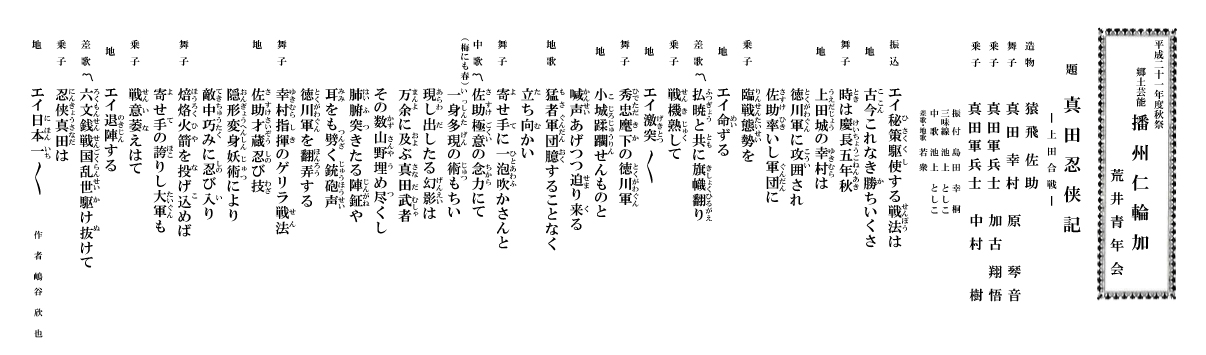 平成二十一年度秋祭
郷土芸能
播州仁輪加
荒井青年会
題 真田忍侠記
―上田合戦―
造物 猿飛佐助
舞子 真田幸村 原 琴音
乗子 真田軍兵士 加古翔悟
乗子 真田軍兵士 中村 樹
振付 島田幸桐
三味線 池上としこ
中歌 池上としこ
差歌・地歌 若衆
振込 エイ秘策駆使する戦法は
地 古今これなき勝ちいくさ
舞子 時は慶長五年秋
地 上田城の幸村は
徳川軍に攻囲され
佐助率いし軍団に
乗子 臨戦態勢を
地 エイ命ずる
差歌〽 払暁と共に旗幟翻り
乗子 戦機熟して
地 エイ激突〳〵
舞子 秀忠麾下の徳川軍
地 小城蹂躙せんものと
喊声あげつつ迫り来る
地歌 猛者軍団臆することなく
立ち向かい
舞子 寄せ手に一泡吹かさんと
中歌〽 佐助極意の念力にて
(梅にも春) 一身多現の術もちい
現し出したる幻影は
万余に及ぶ真田武者
その数山野埋め尽くし
肺腑突きたる陣鉦や
耳をも劈く銃砲声
徳川軍を翻弄する
舞子 幸村指揮のゲリラ戦法
地 佐助才蔵忍び技
隠形変身妖術により
敵中巧みに忍び入り
舞子 焙烙火箭を投げ込めば
寄せ手の誇りし大軍も
乗子 戦意萎えはて
地 エイ退陣する
差歌〽 六文銭戦国乱世駆け抜けて
乗子 忍侠真田は
地 エイ日本一〳〵
作者 嶋谷欣也